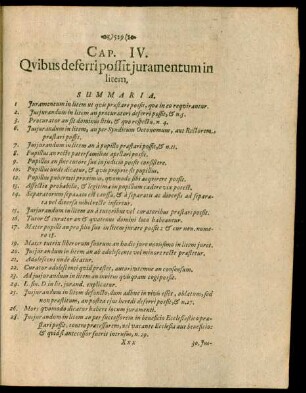 529
CAP. IV.
Qvibus deferri possit juramentum in
litem.
SUMMARIA.
1 Juramentum in litem ut quis præstare possit, quæ in eo requirantur.
2 Jusjurandum in litem an procuratori deferri possit, & n. 3.
3 Procurator an sit dominus litis, & quo respectu. n. 4.
6 Jusjurandum in litem, an per Syndicum Oeconomum, aut Rectorem
præstari possit.
7 Jusjurandum in litem an à pupillo præstari possit, & n. 11.
8 Pupillus an recte paterfamilias apellari possit.
9 Pupillus an sine tutore suo in judicio possit consistere.
10 Pupillus unde dicatur, & quis proprie sit pupillus.
Pupillus pubertati proximus, quomodo sibi acquirere possit.
13 Affectio probabilis, & legitima in pupillum cadere non potest.
14
15 Jusjurandum in litem an à tutoribus vel curatoribus præstari possit.
16 Tutor & curator an & quatenus domini loco habeantur.
17 Mater pupilli an pro filio suo in litem jurare possit & cur non. num-
ro 18.
19 Mater tutrix liberorum suorum an hodie jure novissimo in litem juret.
21 Jusjurandum in litem an ab adolescente vel minore recte præstetur.
22 Adolescens unde dicatur.
22 Curator adolescenti quid præstet, autoritatem an consensum.
23 Ad jusjurandum in litem an invitus quisquam cogi possit.
24 explicatur.
25 Jusjurandum in litem defuncto, dum adhuc in vivis esset, oblatum, sed
non præstitum, an postea ejus heredi deferri possit, & n. 27.
26 Mors quomodo dicatur habere locum juramenti.
28 Jusjurandum in litem an per successorem in beneficio Ecclesiastico præ-
stari possit, contra prædecessorem, vel vacante Ecclesia aut beneficio:
& quid si antecessor fuerit intrusus, n. 29.
Xxx
30. Jus-